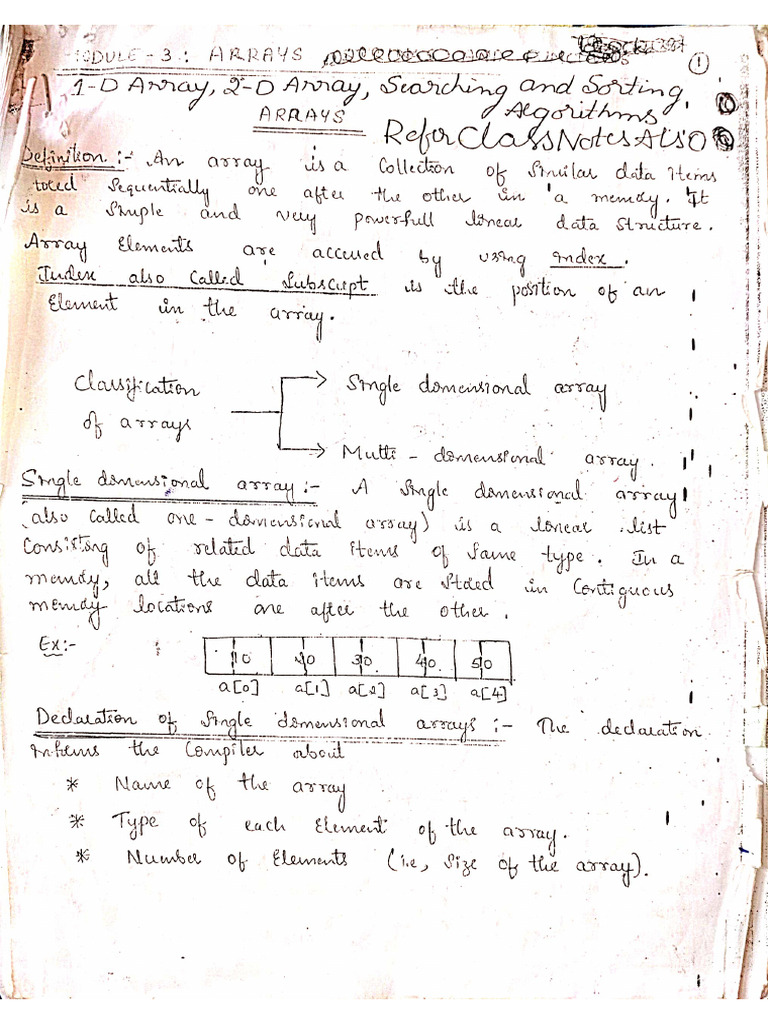 MODULE - 3 : ARRAYS
1
1-D Array, 2-D Array, Searching and Sorting
Algorithms
ARRAYS
Refer Class Notes Also
Definition :- An array is a Collection of Similar data items
tored Sequentially one after the other in a memory. It
is a Simple and very powerfull linear data structure.
Array Elements are accessed by using Index.
Index also Called Subscript is the position of an
Element in the array.
Classification
of arrays
Single dimensional array
Multi - dimensional array.
Single dimensional array :- A Single dimensional array
(also called one - dimensional array) is a linear list
Consisting of related data items of same type. In a
memory, all the data items are stored in Contiguous
memory locations one after the other.
Ex:-
10 20 30 40 50
a[0] a[1] a[2] a[3] a[4]
Declaration of Single dimensional arrays :- The declaration
informs the Compiler about
* Name of the array
* Type of each Element of the array.
* Number of Elements (i.e, Size of the array).